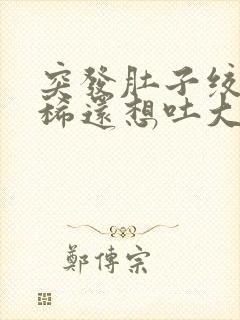 突發肚子絞
稀還想吐大
鄭傳宗